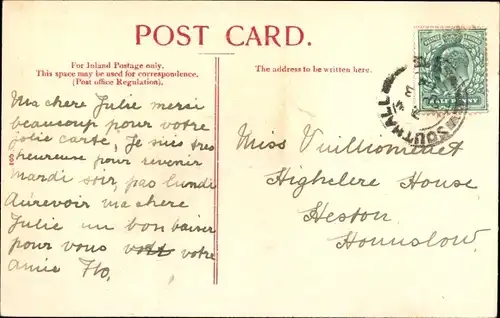 POST CARD.
For Inland Postage only.
This space may be used for correspondence.
(Post office Regulation).
The address to be written here.
Ma chere Julie merci
beaucoup pour votre
jolie carte, Je suis tres
heureuse pour revenir
mardi soir, pas lundi
Aurevoir ma chere
Julie un bon baiser
pour vous votre
amie Flo,
Miss
Highclere House
Heston
Hounslow.
SOUTHALL
HALFPENNY